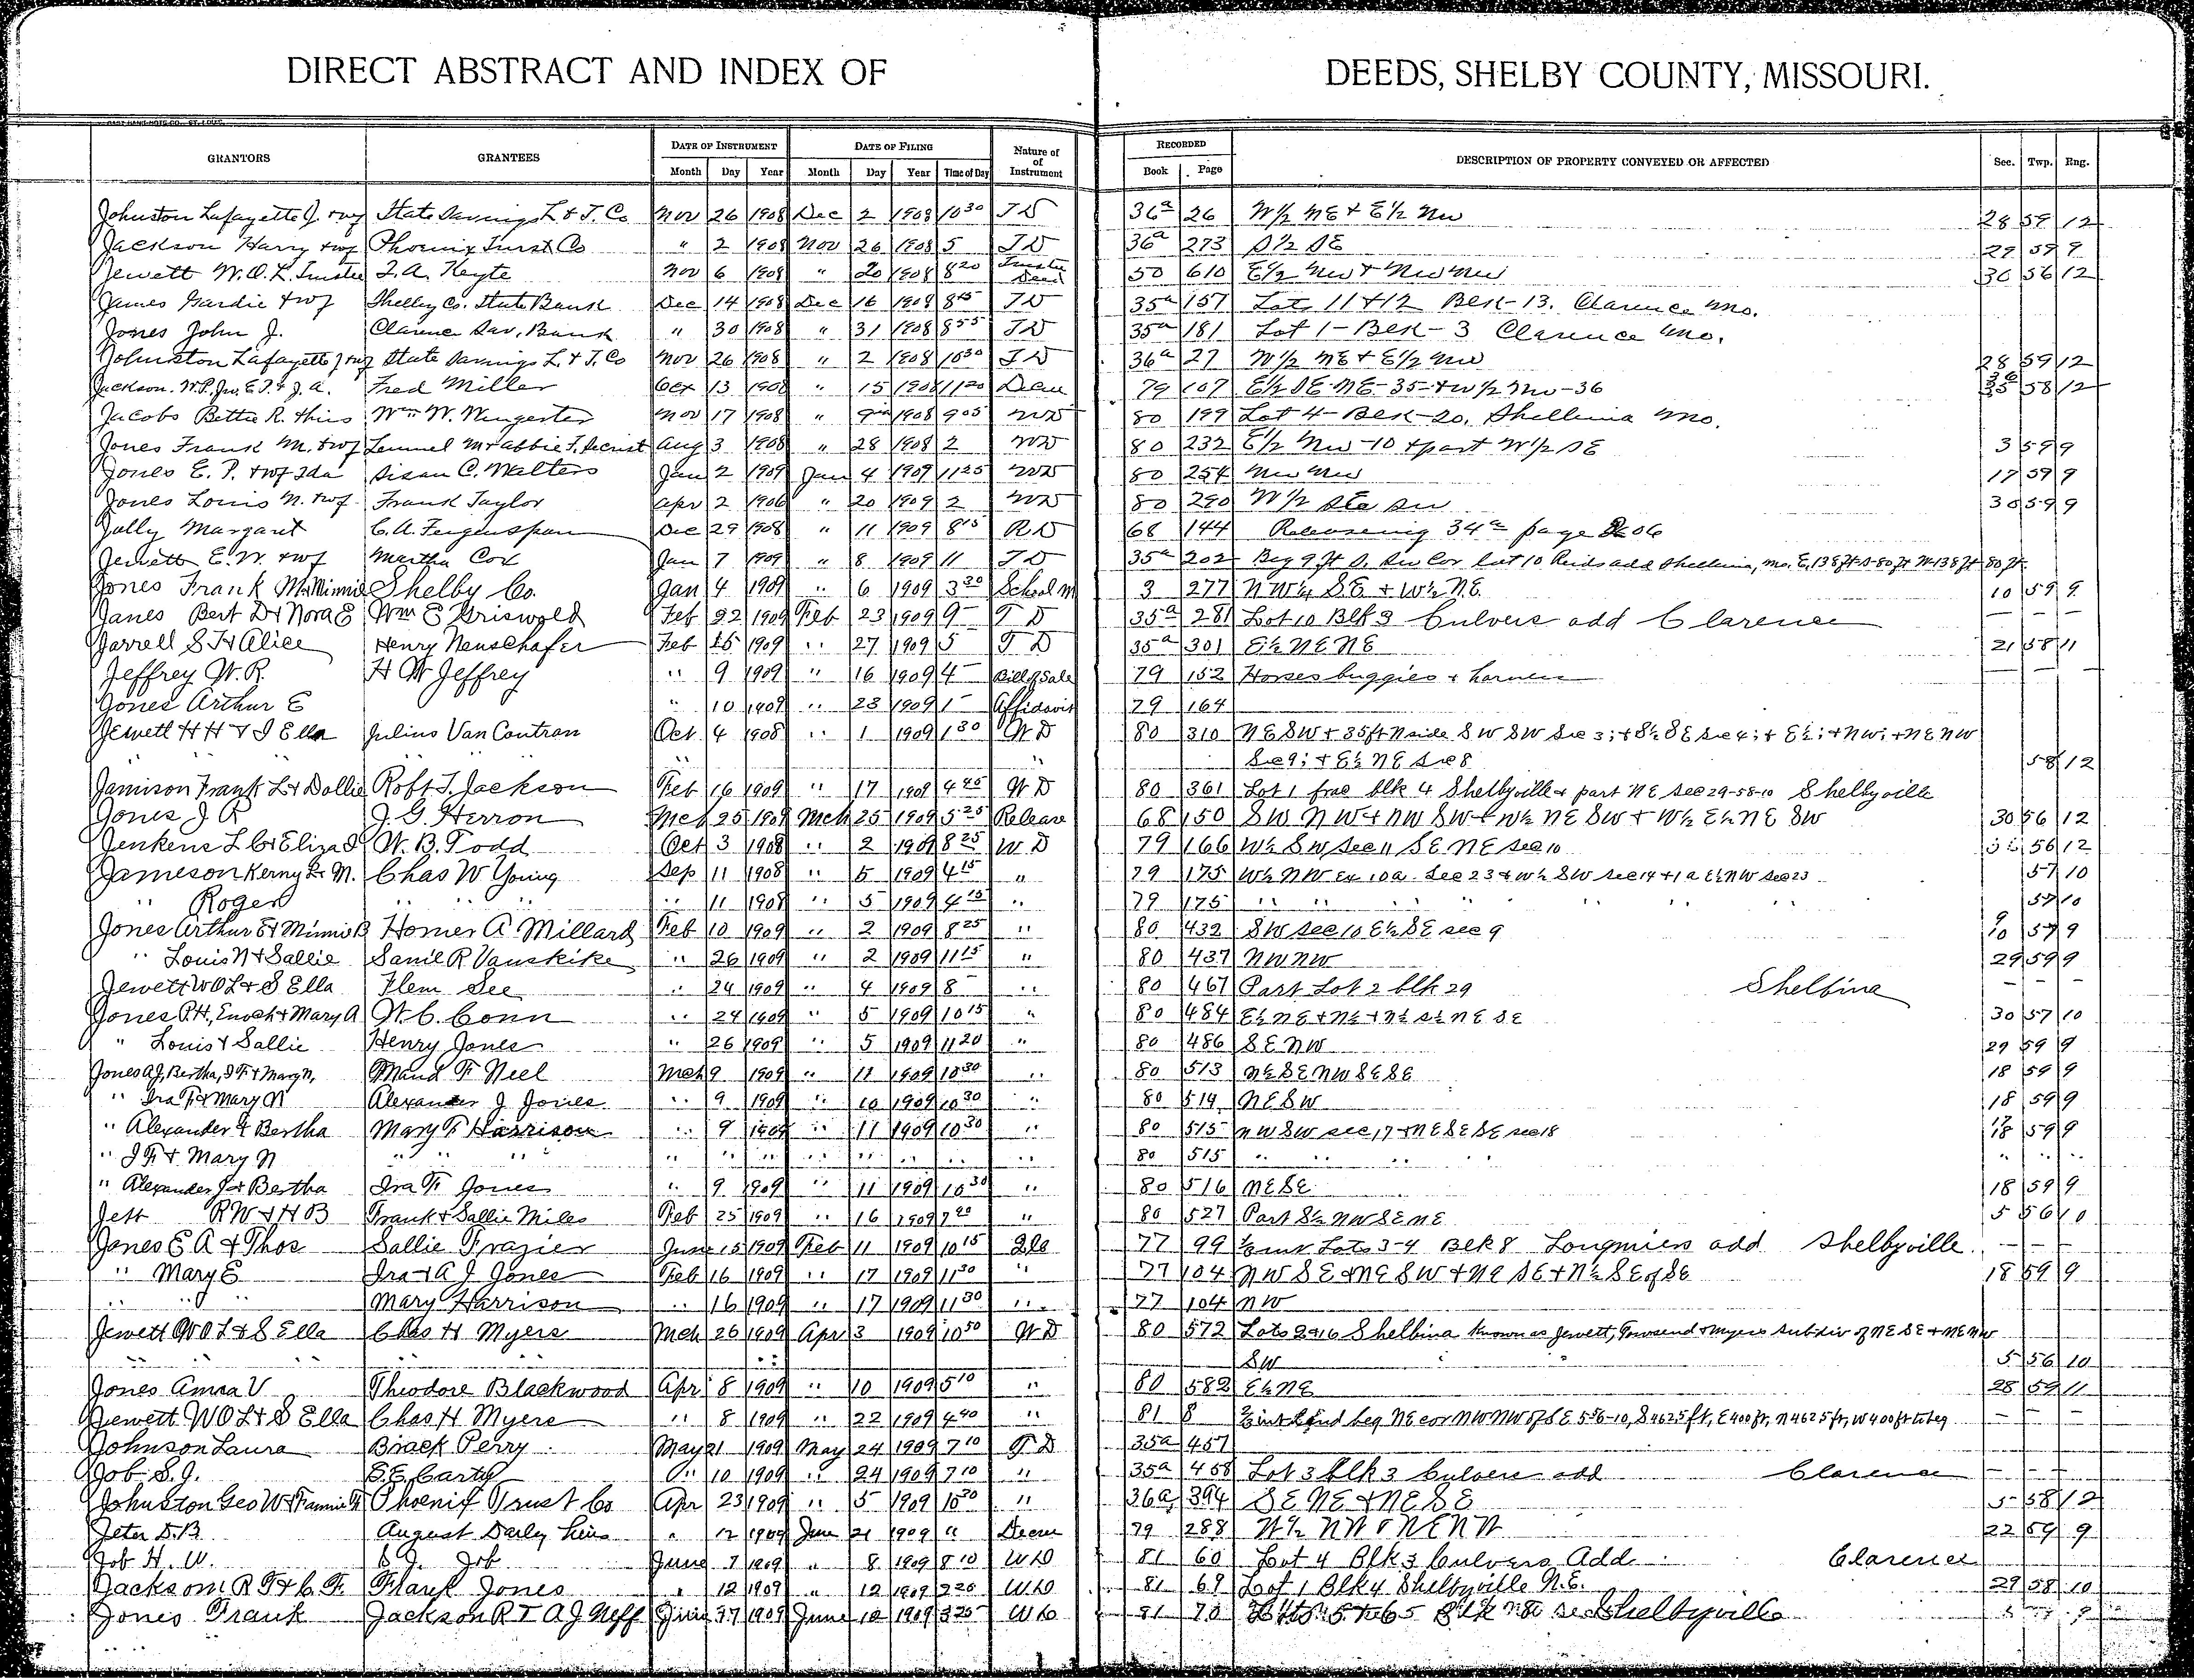 DIRECT ABSTRACT AND INDEX OF DEEDS, SHELBY COUNTY, MISSOURI.
GRANTORS GRANTEES DATE OF INSTRUMENT DATE OF FILING Nature of of Instrument RECORDED DESCRIPTION OF PROPERTY CONVEYED OR AFFECTED Sec. Twp. Rng.
Month Day Year Month Day Year Time of Day Book Page
Johnston Lafayette J. & wf State Savings L. & T. Co Nov 26 1908 Dec 2 1908 10 30 T D 36a 26 W 1/2 NE & E 1/2 NW 28 59 12
Jackson Harry & wf Phoenix Trust Co " 2 1908 Nov 26 1908 5 T D 36a 273 S 1/2 SE 29 59 9
Jewett W.O.L. Trustee L.A. Keyte Nov 6 1908 " 20 1908 8 20 Trustee Deed 50 610 E 1/2 NW & NW NW 36 56 12
James Gardie & wf Shelby Co. State Bank Dec 14 1908 Dec 16 1908 8 45 T D 35a 157 Lots 11 & 12 Blk-13. Clarence Mo.
Jones John J. Clarence Sav. Bank " 30 1908 " 31 1908 8 55 T D 35a 181 Lot 1 - Blk - 3 Clarence Mo.
Johnston Lafayette J & wf State Savings L. & T. Co Nov 26 1908 " 2 1908 10 30 T D 36a 27 W 1/2 NE & E 1/2 NW 28 59 12
Jackson. W.P. Jno. E.P. & J.A. Fred Miller Oct 13 1908 " 15 1908 11 20 79 107 E 1/2 SE-NE-35-& W 1/2 NW-36 36 35 58 12
Jacobs Bettie R. & hus Wm W. Wingerter Nov 17 1908 " 9 1908 9 05 WD 80 199 Lot 4-Blk-20. Shelbina Mo.
Jones Frank M. & wf Lemuel M & Abbie F. Secrist Aug 3 1908 " 28 1908 2 WD 80 232 E 1/2 NW-10 & part W 1/2 SE 3 59 9
Jones E. P. & wf Ida Susan C. Walters Jan 2 1909 Jan 4 1909 11 25 WD 80 254 NW NW 17 59 9
Jones Louis N. & wf Frank Taylor Apr 2 1906 " 20 1909 2 WD 80 290 W 1/2 30 59 9
Jolly Margaret C.A. Dec 29 1908 " 11 1909 8 15 R D 68 144 Releasing 34a page 206
Jewett E.W. & wf Martha Cox Jan 7 1909 " 8 1909 11 T D 35a 202 Beg 9 ft S. SW Cor lot 10 Reids add Shelbina, Mo. E. 138 ft S-80 ft W-138 ft 80 ft.
Jones Frank M & Minnie Shelby Co. Jan 4 1909 " 6 1909 3 30 School M 3 277 NW 1/4 SE + W 1/2 NE 10 59 9
Janes Bert D & Nora E Wm E Griswold Feb 22 1909 Feb 23 1909 9 - T D 35a 281 Lot 10 Blk 3 Culvers add Clarence
Jarrell S F & Alice Henry Neuschafer Feb 25 1909 " 27 1909 5 T D 35a 301 E 1/2 NE NE 21 58 11
Jeffrey W. R. H W Jeffrey " 9 1909 " 16 1909 4 - Bill of Sale 79 152 Horses buggies & harness
Jones Arthur E " 10 1909 " 23 1909 1 - Affidavit 79 164
Jewett H H & S Ella Julius Van Contran Oct 4 1908 " 1 1909 1 30 W D 80 310 NE SW + 35 ft N side SW SW Sec 3; + S 1/2 SE Sec 4; + E 1/2; + NW; + NE NW
" " " " " Sec 9; + E 1/2 NE Sec 8 58 12
Jamison Frank L & Dollie Robt T. Jackson Feb 16 1909 " 17 1908 4 45 W D 80 361 Lot 1 frac blk 4 Shelbyville & part NE Sec 29-58-10 Shelbyville
Jones J R J. G. Herron Mch 25 1909 Mch 25 1909 5 25 Release 68 150 SW NW + NW SW + W 1/2 NE SW + W 1/2 E 1/2 NE SW 30 56 12
Jenkens L C & Eliza J W. B. Todd Oct 3 1908 " 2 1909 8 25 W D 79 166 W 1/2 SW Sec 11 SE NE Sec 10 56 12
Jameson Kerny L. M. Chas W Young Sep 11 1908 " 5 1909 4 15 " 79 175 W 1/2 NW Ex 10a Sec 23 + W 1/2 SW Sec 14 + 1a E 1/2 NW Sec 23 57 10
" Roger " " " " 11 1908 " 5 1909 4 15 " 79 175 " " " " " " " 57 10
Jones Arthur E & Minnie B Homer A Millard Feb 10 1909 " 2 1909 8 25 " 80 432 SW Sec 10 E 1/2 SE sec 9 9 10 57 9
" Louis N & Sallie Saml R Vanskike " 26 1909 " 2 1909 11 15 " 80 437 NW NW 29 59 9
Jewett W O L & S Ella Flem See " 24 1909 " 4 1909 8 " 80 467 Part Lot 2 blk 29 Shelbina
Jones P.H., Enoch & Mary A W. C. Conn " 24 1909 " 5 1909 10 15 " 80 484 E 1/2 NE + N 1/2 + N 1/2 S 1/2 NE SE 30 57 10
" Louis & Sallie Henry Jones " 26 1909 " 5 1909 11 20 " 80 486 SE NW 29 59 9
Jones A J, Bertha, I F & Mary N, Maud F Neel Mch 9 1909 " 11 1909 10 30 " 80 513 N 1/2 SE NW SE SE 18 59 9
" Ira F & Mary N Alexander J Jones " 9 1909 " 10 1909 10 30 " 80 514 NE SW 18 59 9
" Alexander J & Bertha Mary F Harrison " 9 1909 " 11 1909 10 30 " 80 515 NW SW sec 17 + NE SE SE sec 18 17 18 59 9
" I F & Mary N " " " " " " " " " " " 80 515 " " " " " " "
" Alexander J & Bertha Ira F Jones " 9 1909 " 11 1909 10 30 " 80 516 NE SE 18 59 9
Jett R W & H B Frank & Sallie Miles Feb 25 1909 " 16 1909 7 20 " 80 527 Part S 1/2 NW SE NE 5 56 10
Jones E A & Thos Sallie Frazier June 15 1909 Feb 11 1909 10 15 77 99 Lots 3-4 Blk 8 Longmiers add Shelbyville
" Mary E Ira & A J Jones Feb 16 1909 " 17 1909 11 30 " 77 104 NW SE & NE SW + NE SE + N 1/2 SE of SE 18 59 9
" " " Mary Harrison " 16 1909 " 17 1909 11 30 " 77 104 NW
Jewett W O L & S Ella Chas H Myers Mch 26 1909 Apr 3 1909 10 50 W D 80 572 Lots 2 Shelbina known as Jewett, Townsend & Myers subdiv of NE SE + NE NW
" " " SW 5 56 10
Jones Amsa V Theodore Blackwood Apr 8 1909 " 10 1909 5 10 " 80 582 E 1/2 NE 28 59 11
Jewett W O L & S Ella Chas H Myers " 8 1909 " 22 1909 4 40 " 81 8 beg NE cor NW NW of SE 5-56-10, S 462.5 ft, E 400 ft, N 462.5 ft, W 400 ft to beg
Johnson Laura Brack Perry May 21 1909 May 24 1909 7 10 T D 35a 457
Job S. J. S. E. Carty " 10 1909 " 24 1909 7 10 " 35a 458 Lot 3 blk 3 Culvers add Clarence
Johnston Geo W & Fannie F Phoenix Trust Co Apr 23 1909 " 5 1909 10 30 " 36a 394 SE NE & NE SE 5 58 12
Jeter D. B. August Darly heirs " 12 1909 June 21 1909 " Decree 79 288 W 1/2 NW & NE NW 22 59 9
Job H. W. S. J. Job June 7 1909 " 8 1909 8 10 W D 81 60 Lot 4 Blk 3 Culvers Add. Clarence
Jackson R T & C. F. Frank Jones " 12 1909 " 12 1909 2 20 W D 81 69 Lot 1 Blk 4 Shelbyville N.E. 29 58 10
Jones Frank Jackson R T A J Neff June 1909 June 1909 3 25 W D 81 70 Shelbyville